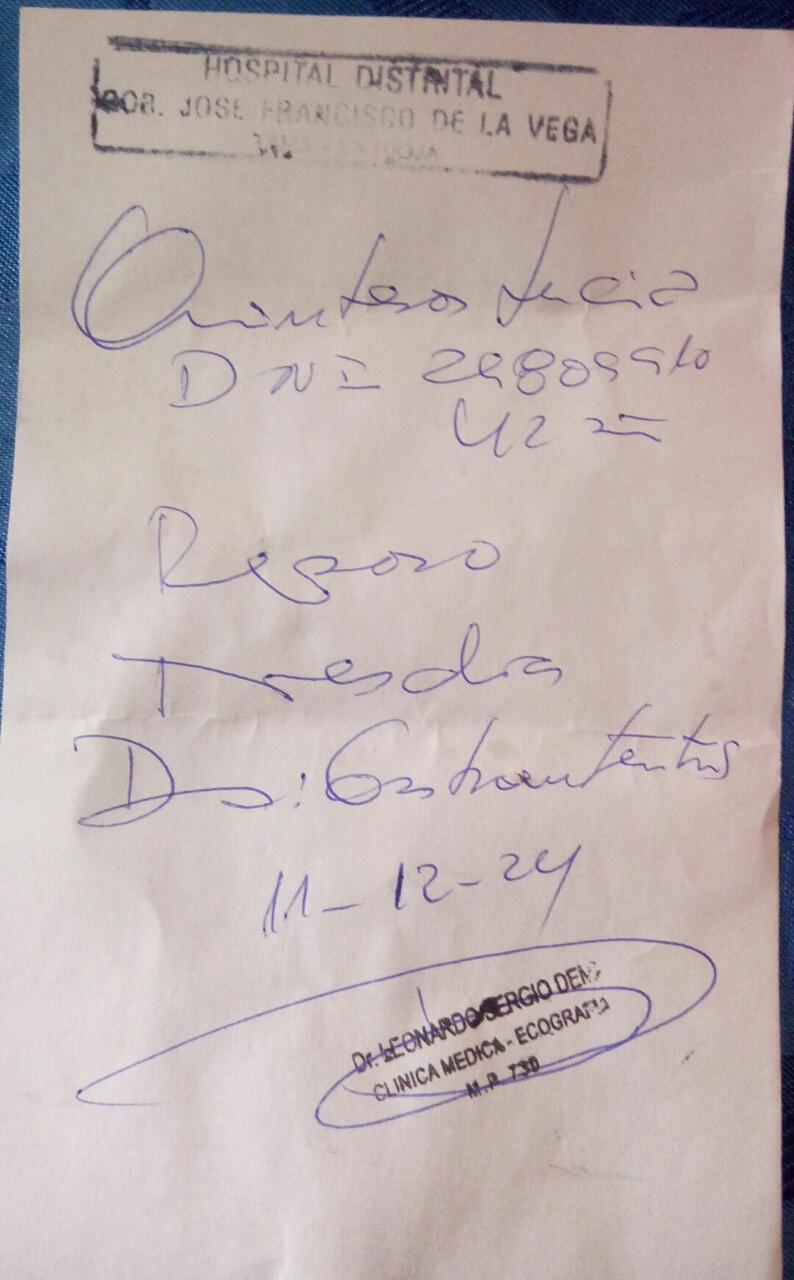 HOSPITAL DISTRITAL
DR. JOSE FRANCISCO DE LA VEGA
LA RIOJA
Quinteros Lucia
DNI
42 añ
Reposo
Tres dias
Dx: Gastroenteritis
11-12-24
Dr. LEONARDO SERGIO
CLINICA MEDICA - ECOGRAFIA
M.P. 730